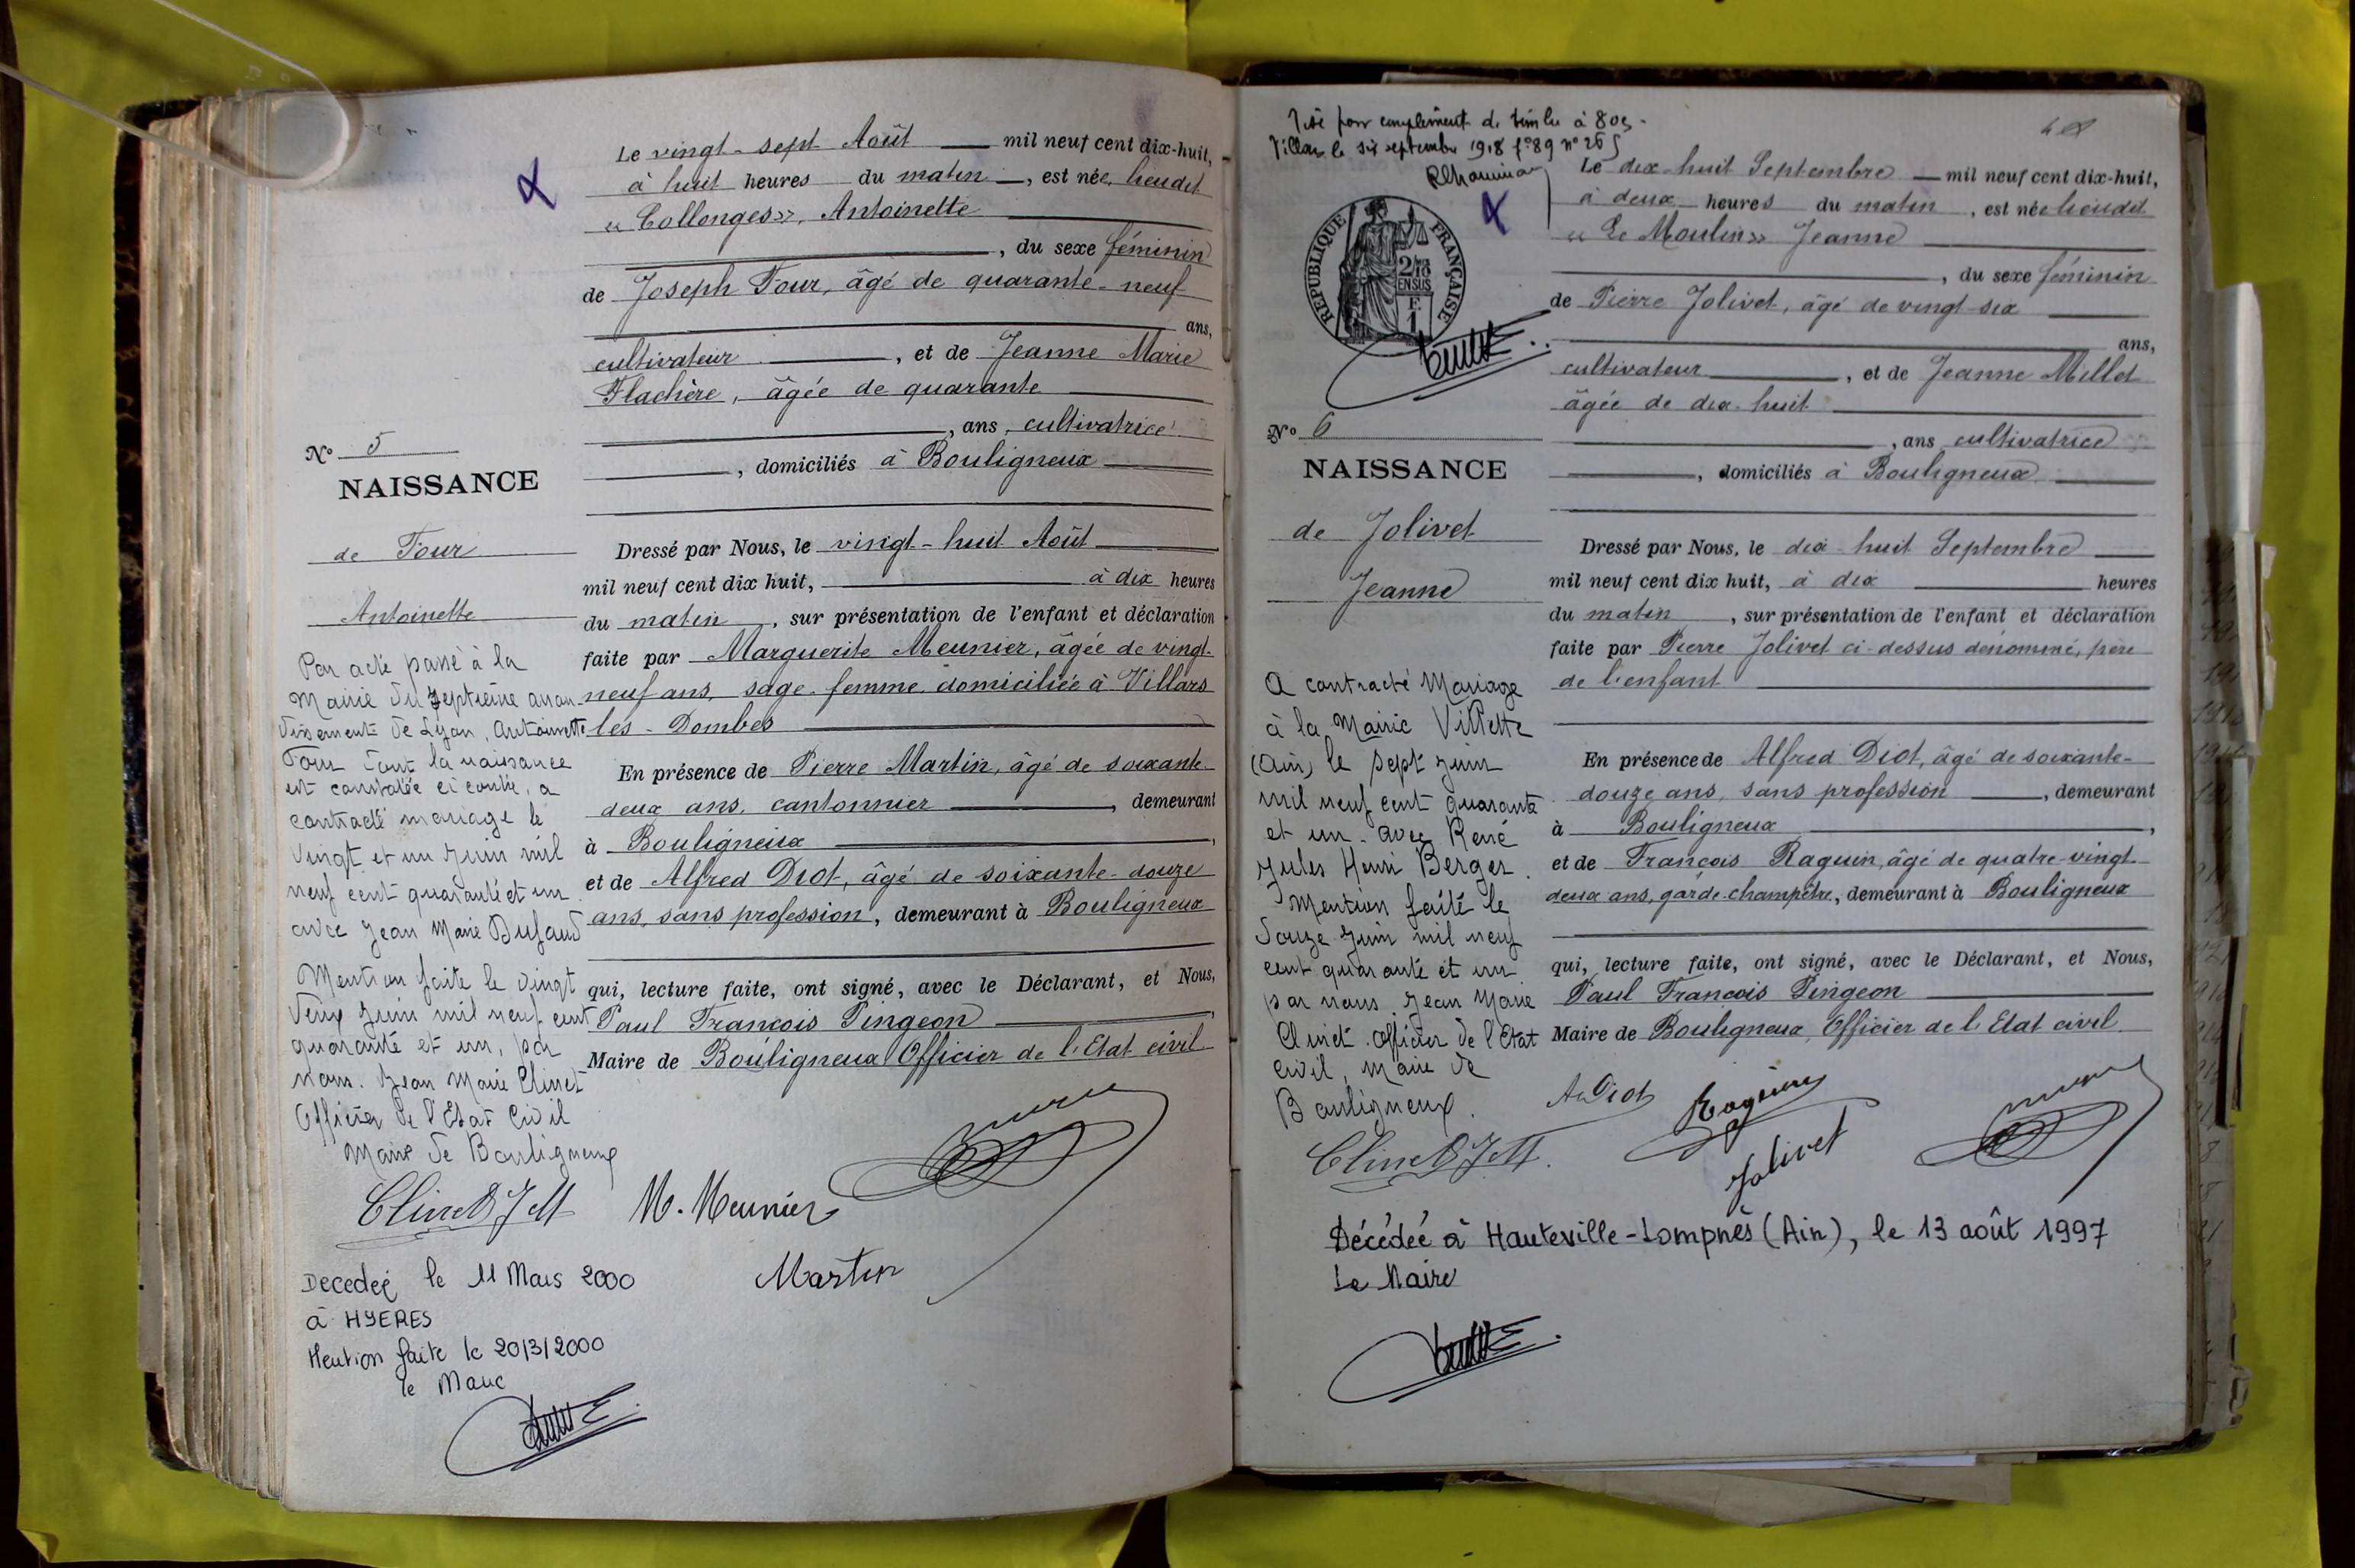 Le vingt-sept Août mil neuf cent dix-huit,
à huit heures du matin, est née, lieudit
« Collonges », Antoinette
, du sexe féminin
de Joseph Four, âgé de quarante-neuf
ans,
cultivateur, et de Jeanne Marie
Flachère, âgée de quarante
, ans, cultivatrice
, domiciliés à Bouligneux
N° 5
NAISSANCE
de Four
Antoinette
Dressé par Nous, le vingt-huit Août
mil neuf cent dix huit, à dix heures
du matin, sur présentation de l'enfant et déclaration
faite par Marguerite Meunier, âgée de vingt-
neuf ans, sage-femme domiciliée à Villars
les-Dombes
En présence de Pierre Martin, âgé de soixante-
deux ans, cantonnier, demeurant
à Bouligneux,
et de Alfred Diot, âgé de soixante-douze
ans, sans profession, demeurant à Bouligneux
qui, lecture faite, ont signé, avec le Déclarant, et Nous,
Paul François Pingeon,
Maire de Bouligneux Officier de l'Etat civil
Par acte passé à la
Mairie du septième arron-
dissement de Lyon, Antoinette
Four dont la naissance
est constatée ci contre, a
contracté mariage le
vingt et un juin mil
neuf cent quarante et un
avec Jean Marie Dufaud
Mention faite le vingt
deux juin mil neuf cent
quarante et un, par
nous. Jean Marie Clinet
Officier de l'Etat Civil
Maire de Bouligneux
Clinet JM
M. Meunier
Martin
Décédée le 11 Mars 2000
à HYERES
Mention faite le 20/3/2000
le Maire
Visé pour complément de timbre à 80c
Villars le six septembre 1918 f° 89 n° 265
RÉPUBLIQUE FRANÇAISE
2/10
EN SUS
F.
1
Le dix-huit Septembre mil neuf cent dix-huit,
à deux heures du matin, est née lieudit
« Le Moulin » Jeanne
, du sexe féminin
de Pierre Jolivet, âgé de vingt-six
ans,
cultivateur, et de Jeanne Millet
âgée de dix-huit
, ans cultivatrice
, domiciliés à Bouligneux
N° 6
NAISSANCE
de Jolivet
Jeanne
Dressé par Nous, le dix-huit Septembre
mil neuf cent dix huit, à dix heures
du matin, sur présentation de l'enfant et déclaration
faite par Pierre Jolivet ci-dessus dénommé, père
de l'enfant
En présence de Alfred Diot, âgé de soixante-
douze ans, sans profession, demeurant
à Bouligneux,
et de François Raguin, âgé de quatre-vingt-
deux ans, garde-champêtre, demeurant à Bouligneux
qui, lecture faite, ont signé, avec le Déclarant, et Nous,
Paul François Pingeon
Maire de Bouligneux, Officier de l'Etat civil
A contracté Mariage
à la Mairie Villette
(Ain) le sept juin
mil neuf cent quarante
et un avec René
Jules Henri Berger.
Mention faite le
douze juin mil neuf
cent quarante et un
par nous. Jean Marie
Clinet. Officier de l'Etat
Civil, Maire de
Bouligneux.
Clinet JM.
A. Diot
Raguin
Jolivet
Décédée à Hauteville-Lompnès (Ain), le 13 août 1997
Le Maire